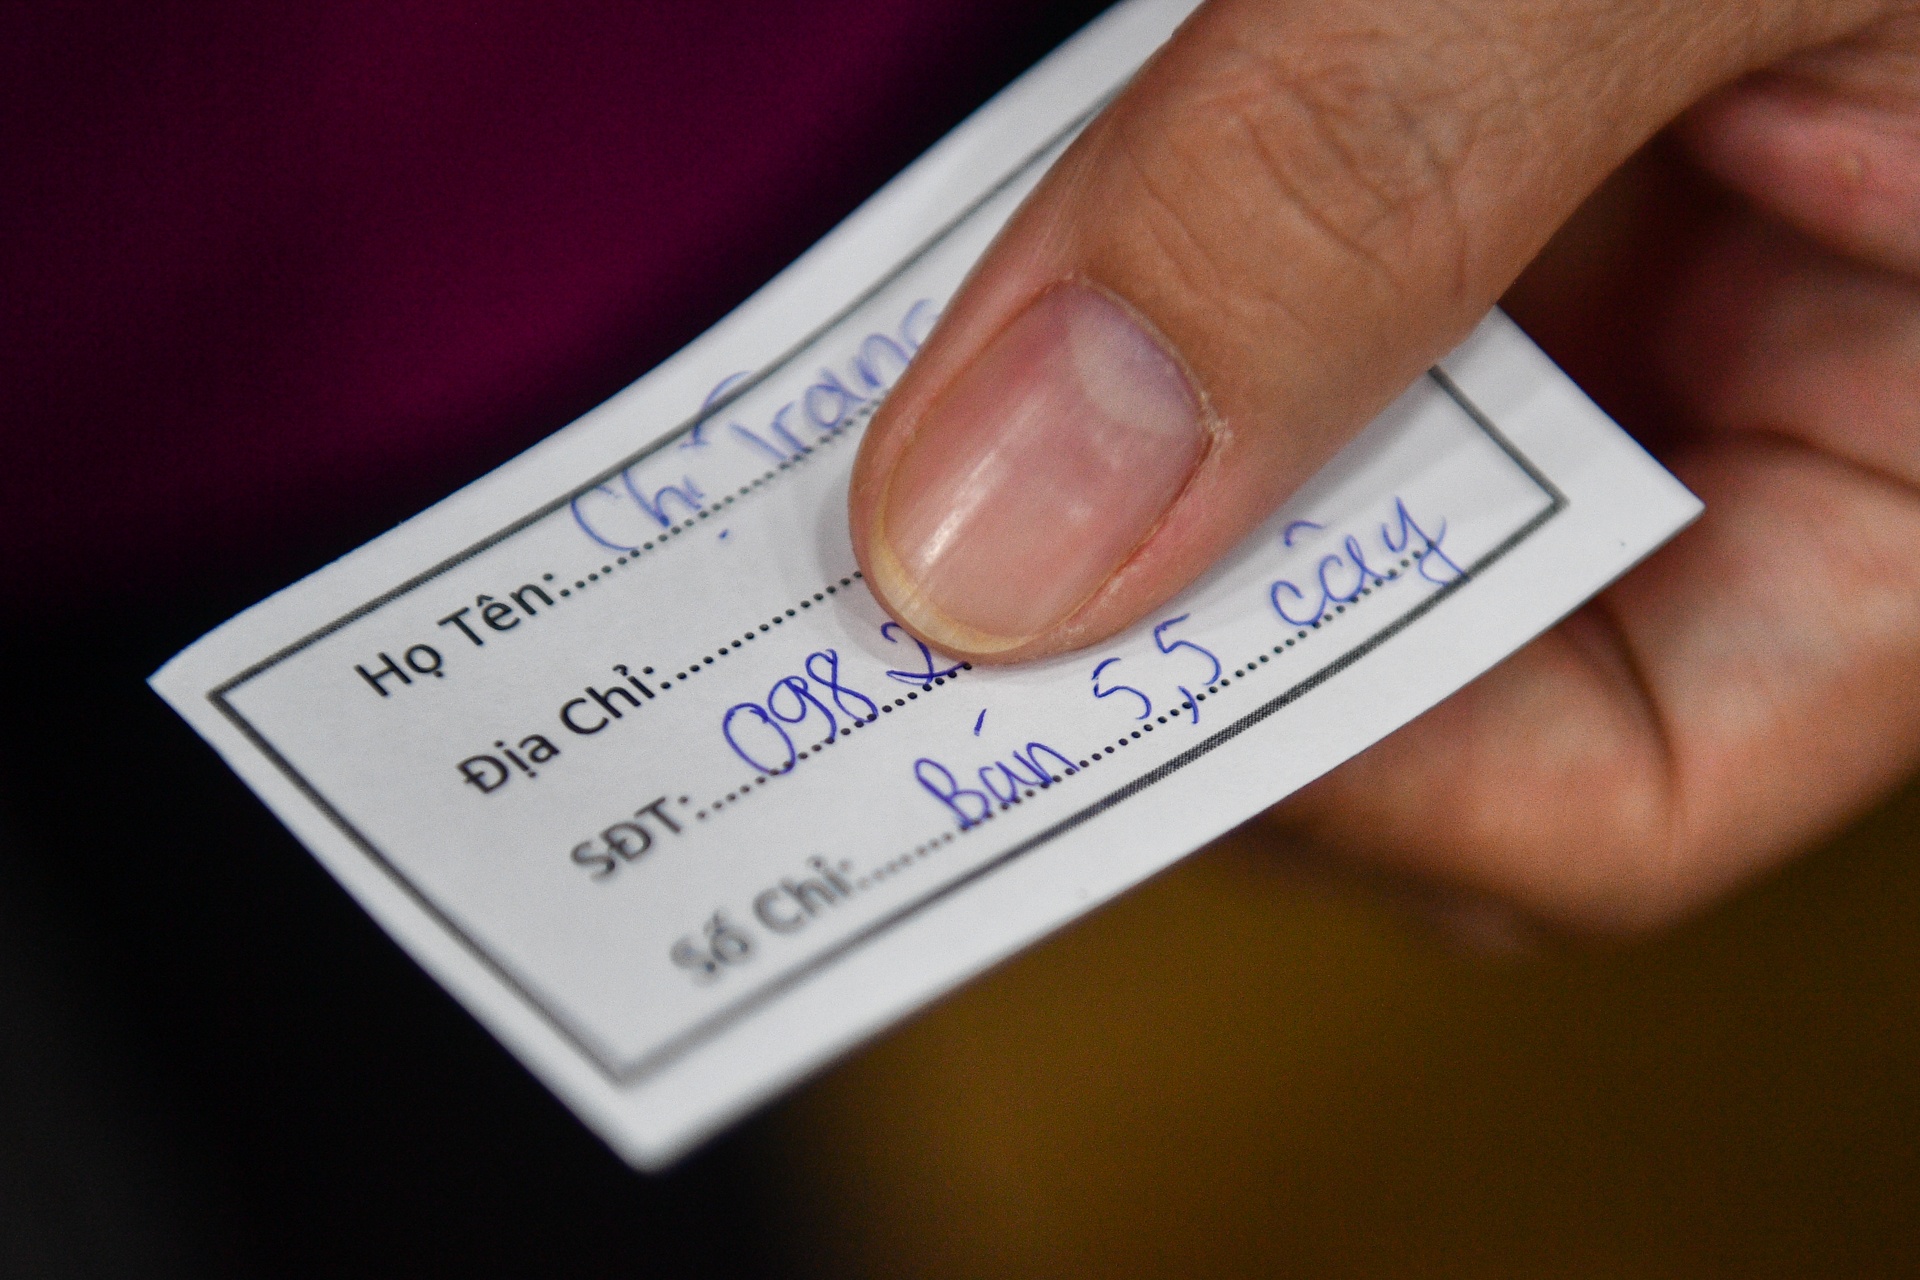 Họ Tên: Chị Trang
Địa Chỉ:
SĐT: 098 2
Số Chỉ: Bán 5,5 cây